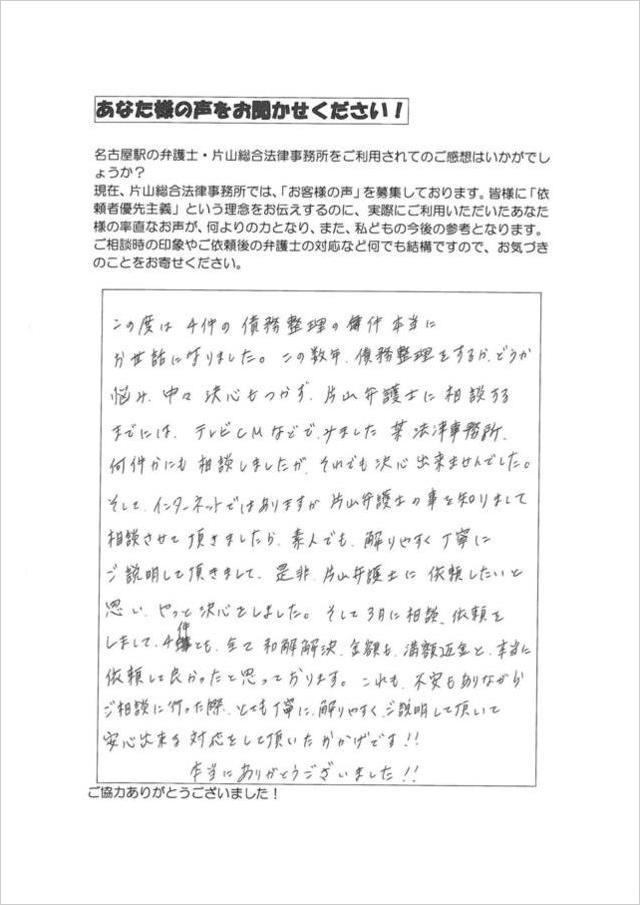 あなた様の声をお聞かせください！
名古屋駅の弁護士・片山総合法律事務所をご利用されてのご感想はいかがでしょ
うか？
現在、片山総合法律事務所では、「お客様の声」を募集しております。皆様に「依
頼者優先主義」という理念をお伝えするのに、実際にご利用いただいたあなた
様の率直なお声が、何よりの力となり、また、私どもの今後の参考となります。
ご相談時の印象やご依頼後の弁護士の対応など何でも結構ですので、お気づき
のことをお寄せください。
この度は4件の債務整理の件本当に
お世話になりました。この数年、債務整理をするか、どうか
悩み、中々決心もつかず、片山弁護士に相談する
までには、テレビCMなどで、みました某法津事務所、
何件かにも相談しましたが、それでも決心出来ませんでした。
そして、インターネットではありますが片山弁護士の事を知りまして
相談させて頂きましたら、素人でも、解りやすく丁寧に
ご説明して頂きまして、是非、片山弁護士に依頼したいと
思い、やっと決心をしました。そして3月に相談、依頼を
しまして、4件とも、全て和解解決、金額も、満額返金と、本当に
依頼して良かったと思っております。これも、不安もありながら
ご相談に行った際、とても丁寧に、解りやすく、ご説明して頂いて
安心出来る対応をして頂いたおかげです!!
本当にありがとうございました!!
ご協力ありがとうございました！